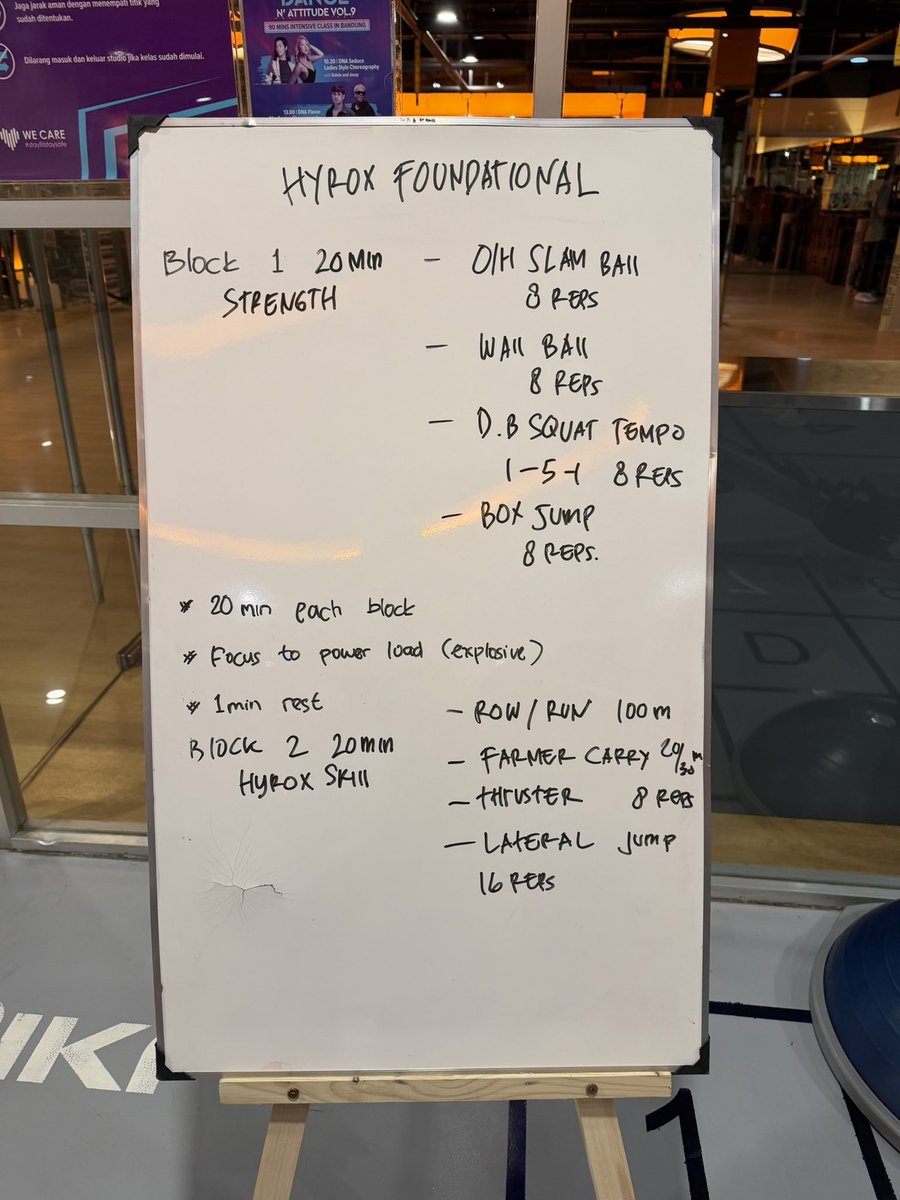 Jaga jarak aman dengan menempati titik yang
sudah ditentukan.
Dilarang masuk dan keluar studio jika kelas sudah dimulai.
WE CARE
#stayfitstaysafe
DANCE
N' ATTITUDE VOL.9
90 MINS INTENSIVE CLASS IN BANDUNG
10.30 | DNA Seduce
Ladies Style Choreography
13.00 | DNA Flavor
HYROX FOUNDATIONAL
Block 1 20 Min
STRENGTH
- O/H SLAM BAll
8 REPS
- WAll BAll
8 REPS
- D.B SQUAT TEMPO
1-5-1 8 REPS
- BOX JUMP
8 REPS.
* 20 min each block
* Focus to power load (explosive)
* 1 min rest
Block 2 20 min
HYROX SKIll
- ROW / RUN 100 m
- FARMER CARRY 20/30 m
- THRUSTER 8 REPS
- LATERAL JUMP
16 REPS
1